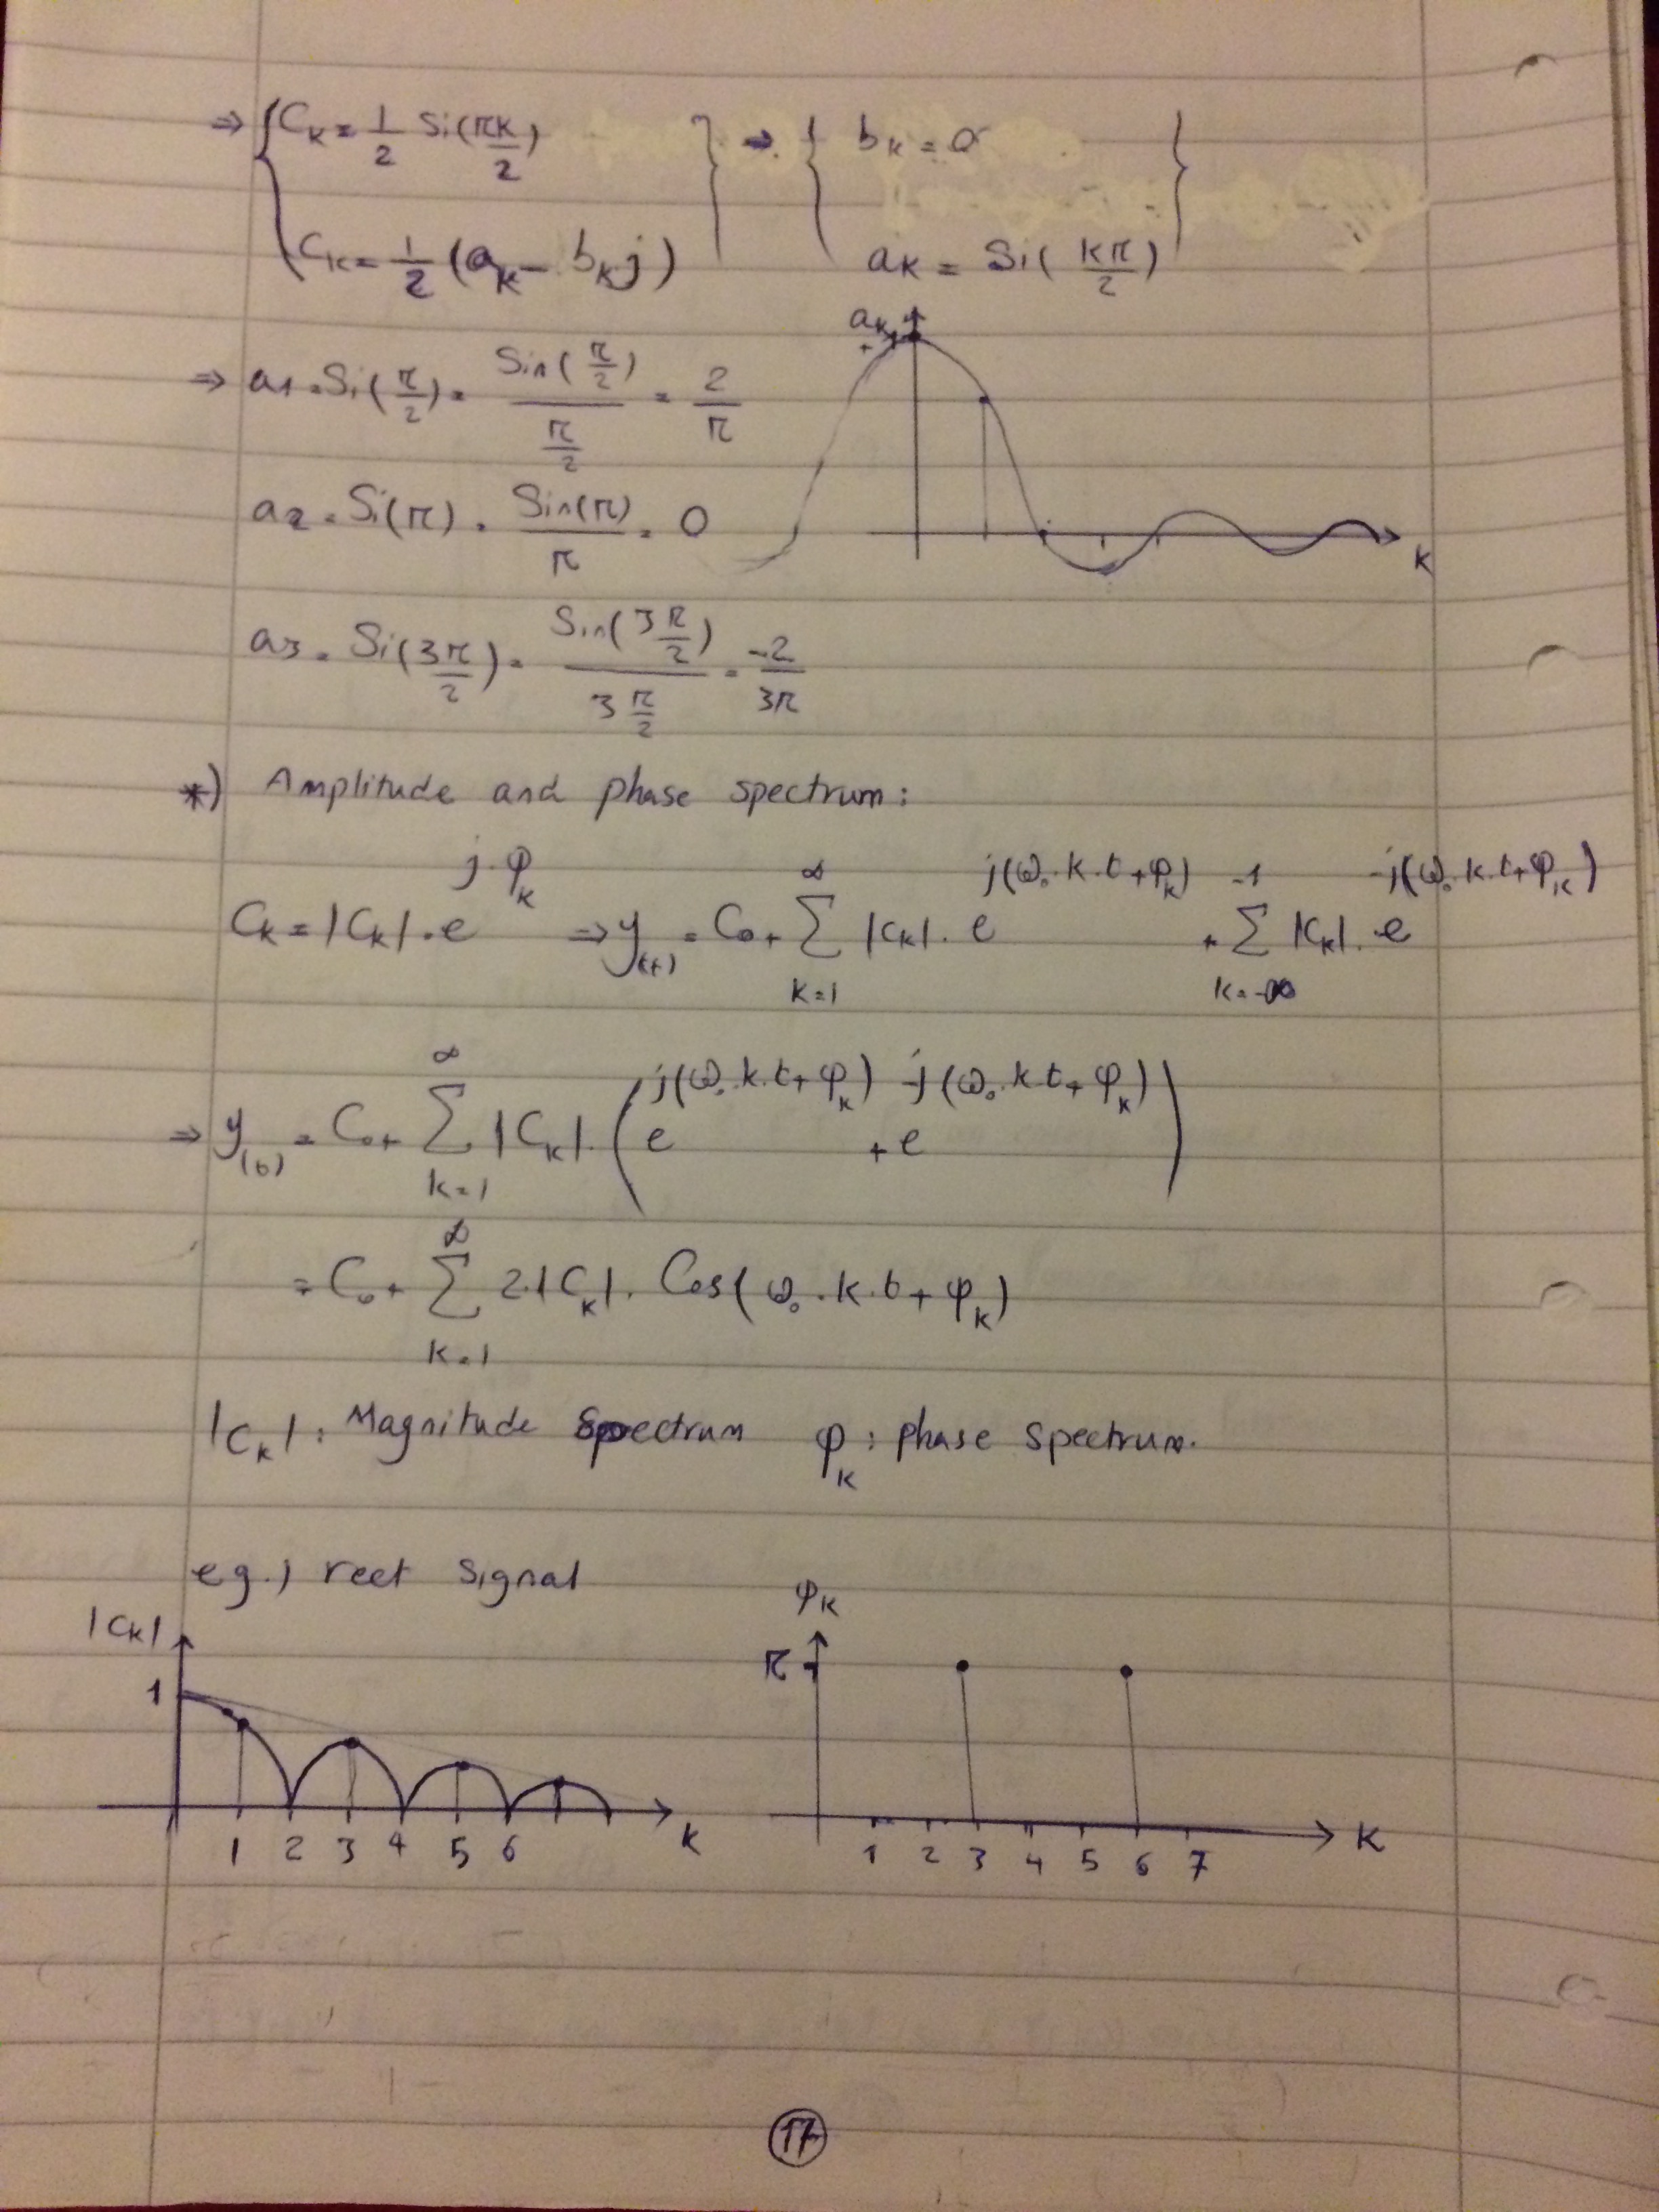 ⇒ { C_k = 1/2 Si(πk/2) } ⇒ { b_k = 0 }
{ C_k = 1/2 (a_k − b_k j) } { a_k = Si(kπ/2) }
a_k
1
k
⇒ a1 = Si(π/2) = Sin(π/2) / (π/2) = 2/π
a2 = Si(π) = Sin(π)/π = 0
a3 = Si(3π/2) = Sin(3π/2) / (3π/2) = -2/3π
*) Amplitude and phase spectrum:
C_k = |C_k| . e^(j.φ_k) ⇒ y(t) = C_0 + ∑_(k=1)^∞ |C_k| . e^(j(ω_0.k.t+φ_k)) + ∑_(k=-∞)^(-1) |C_k| . e^(-j(ω_0.k.t+φ_k))
⇒ y(t) = C_0 + ∑_(k=1)^∞ |C_k| . (e^(j(ω_0.k.t+φ_k)) + e^(-j(ω_0.k.t+φ_k)))
= C_0 + ∑_(k=1)^∞ 2.|C_k| . Cos(ω_0.k.t+φ_k)
|C_k| : Magnitude Spectrum φ_k : phase spectrum.
eg.) rect signal
|C_k|
1
1 2 3 4 5 6 k
φ_k
π
1 2 3 4 5 6 7 k
17